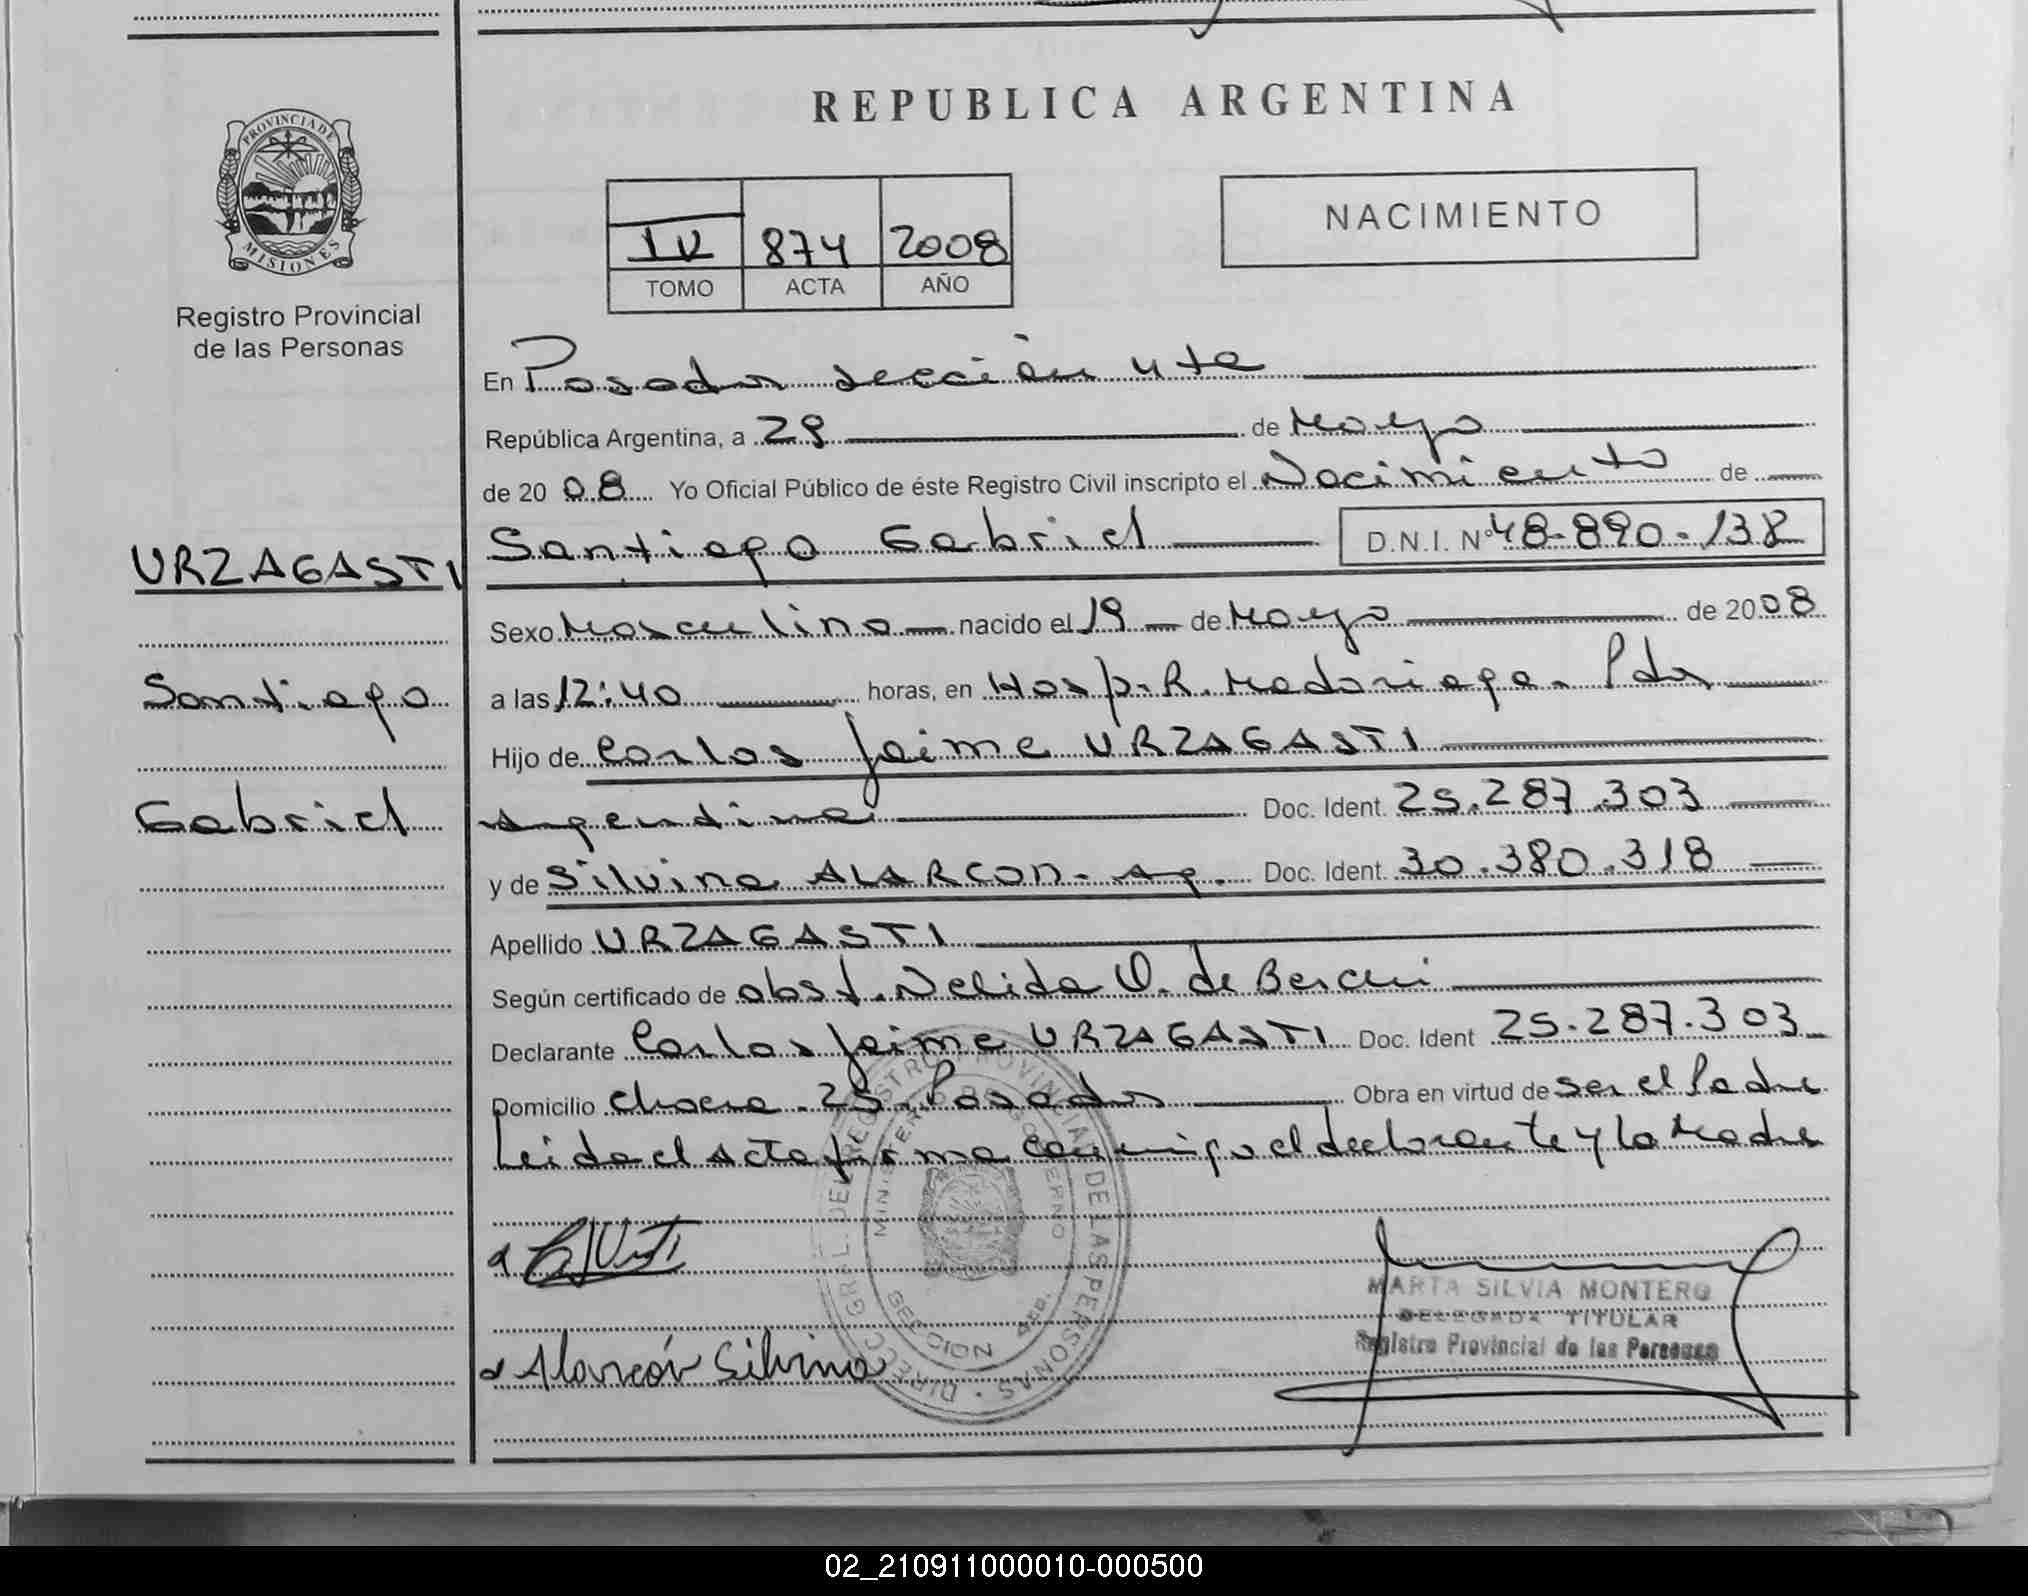 PROVINCIA DE
MISIONES
Registro Provincial
de las Personas
URZAGASTI
Santiago
Gabriel
REPUBLICA ARGENTINA
IV 874 2008
TOMO ACTA AÑO
NACIMIENTO
En Posadas sección 4ta
República Argentina, a 29 de Mayo
de 2008 Yo Oficial Público de éste Registro Civil inscripto el Nacimiento de
Santiago Gabriel D.N.I. Nº 48-890-138
Sexo Masculino nacido el 19 de Mayo de 2008
a las 12:40 horas, en Hosp. R. Madariaga - Pdas
Hijo de Carlos Jaime URZAGASTI
Argentina Doc. Ident. 25.287.303
y de Silvina ALARCON - Ag. Doc. Ident. 30.380.318
Apellido URZAGASTI
Según certificado de obst. Nelida O. de
Declarante Carlos Jaime URZAGASTI Doc. Ident 25.287.303
Domicilio chacra - 25 - Posadas Obra en virtud de ser el Padre
Leida el Acta firma conmigo el declarante y la Madre
DIRECC. GRAL. DEL REGISTRO PROVINCIAL DE LAS PERSONAS
SECCION
Alarcón Silvina
MARTA SILVIA MONTERO
DELEGADA TITULAR
Registro Provincial de las Personas
02_210911000010-000500